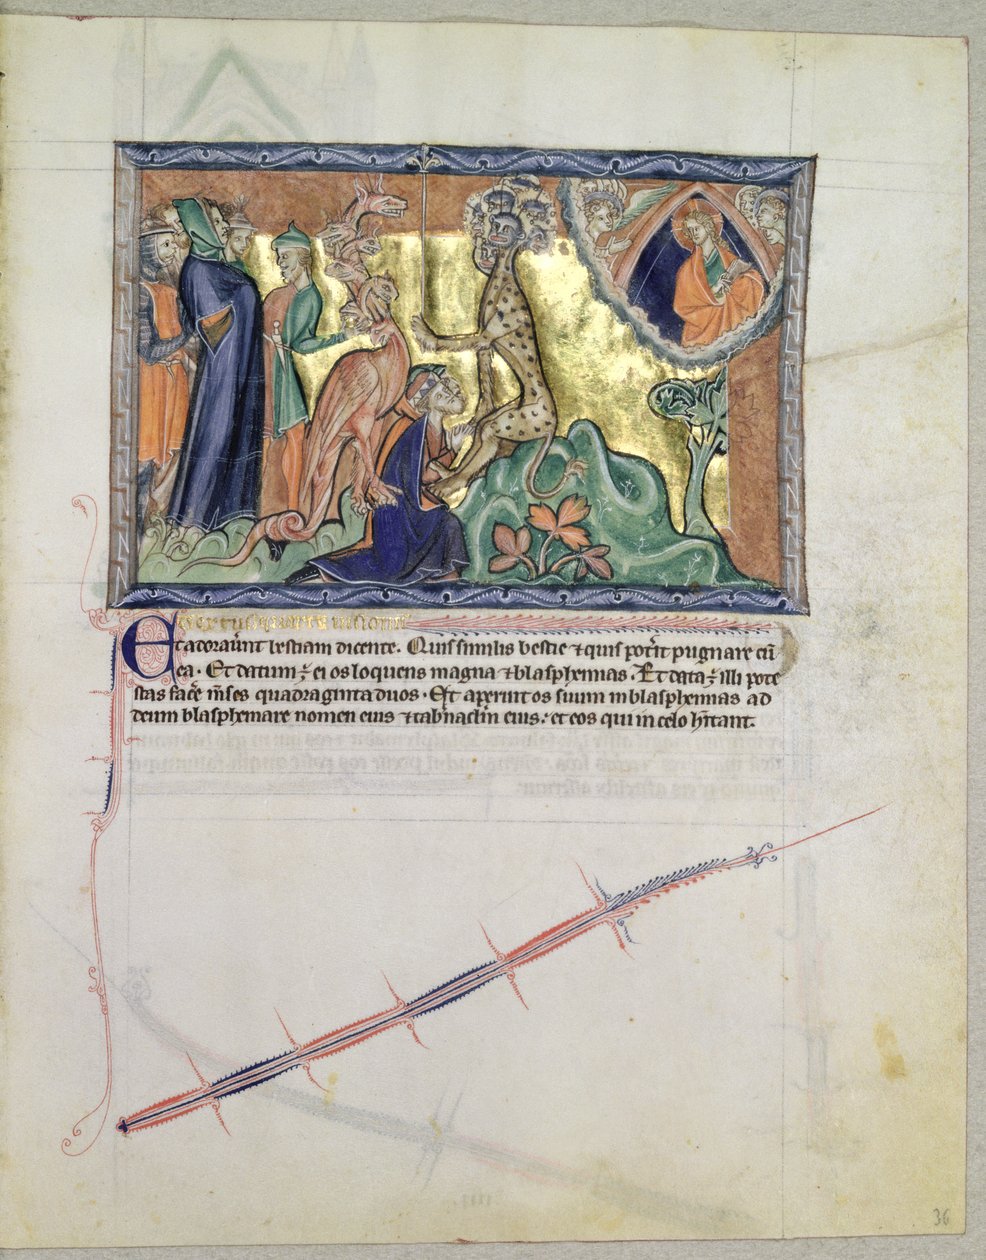 Sextus quarte uisionis
Et adorauer̄nt bestiam dicente. Quis similis bestie ⁊ quis pot̄it pugnare cū
ea. Et datum ; ei os loquens magna ⁊ blasphemias. Et data ; illi pote
stas fac̄e m̄ses quadraginta duos. Et aperuit os suum in blasphemias ad
deum blasphemare nomen eius ⁊ tab̄naclm̄ eius. et eos qui in celo h̄itant.
36